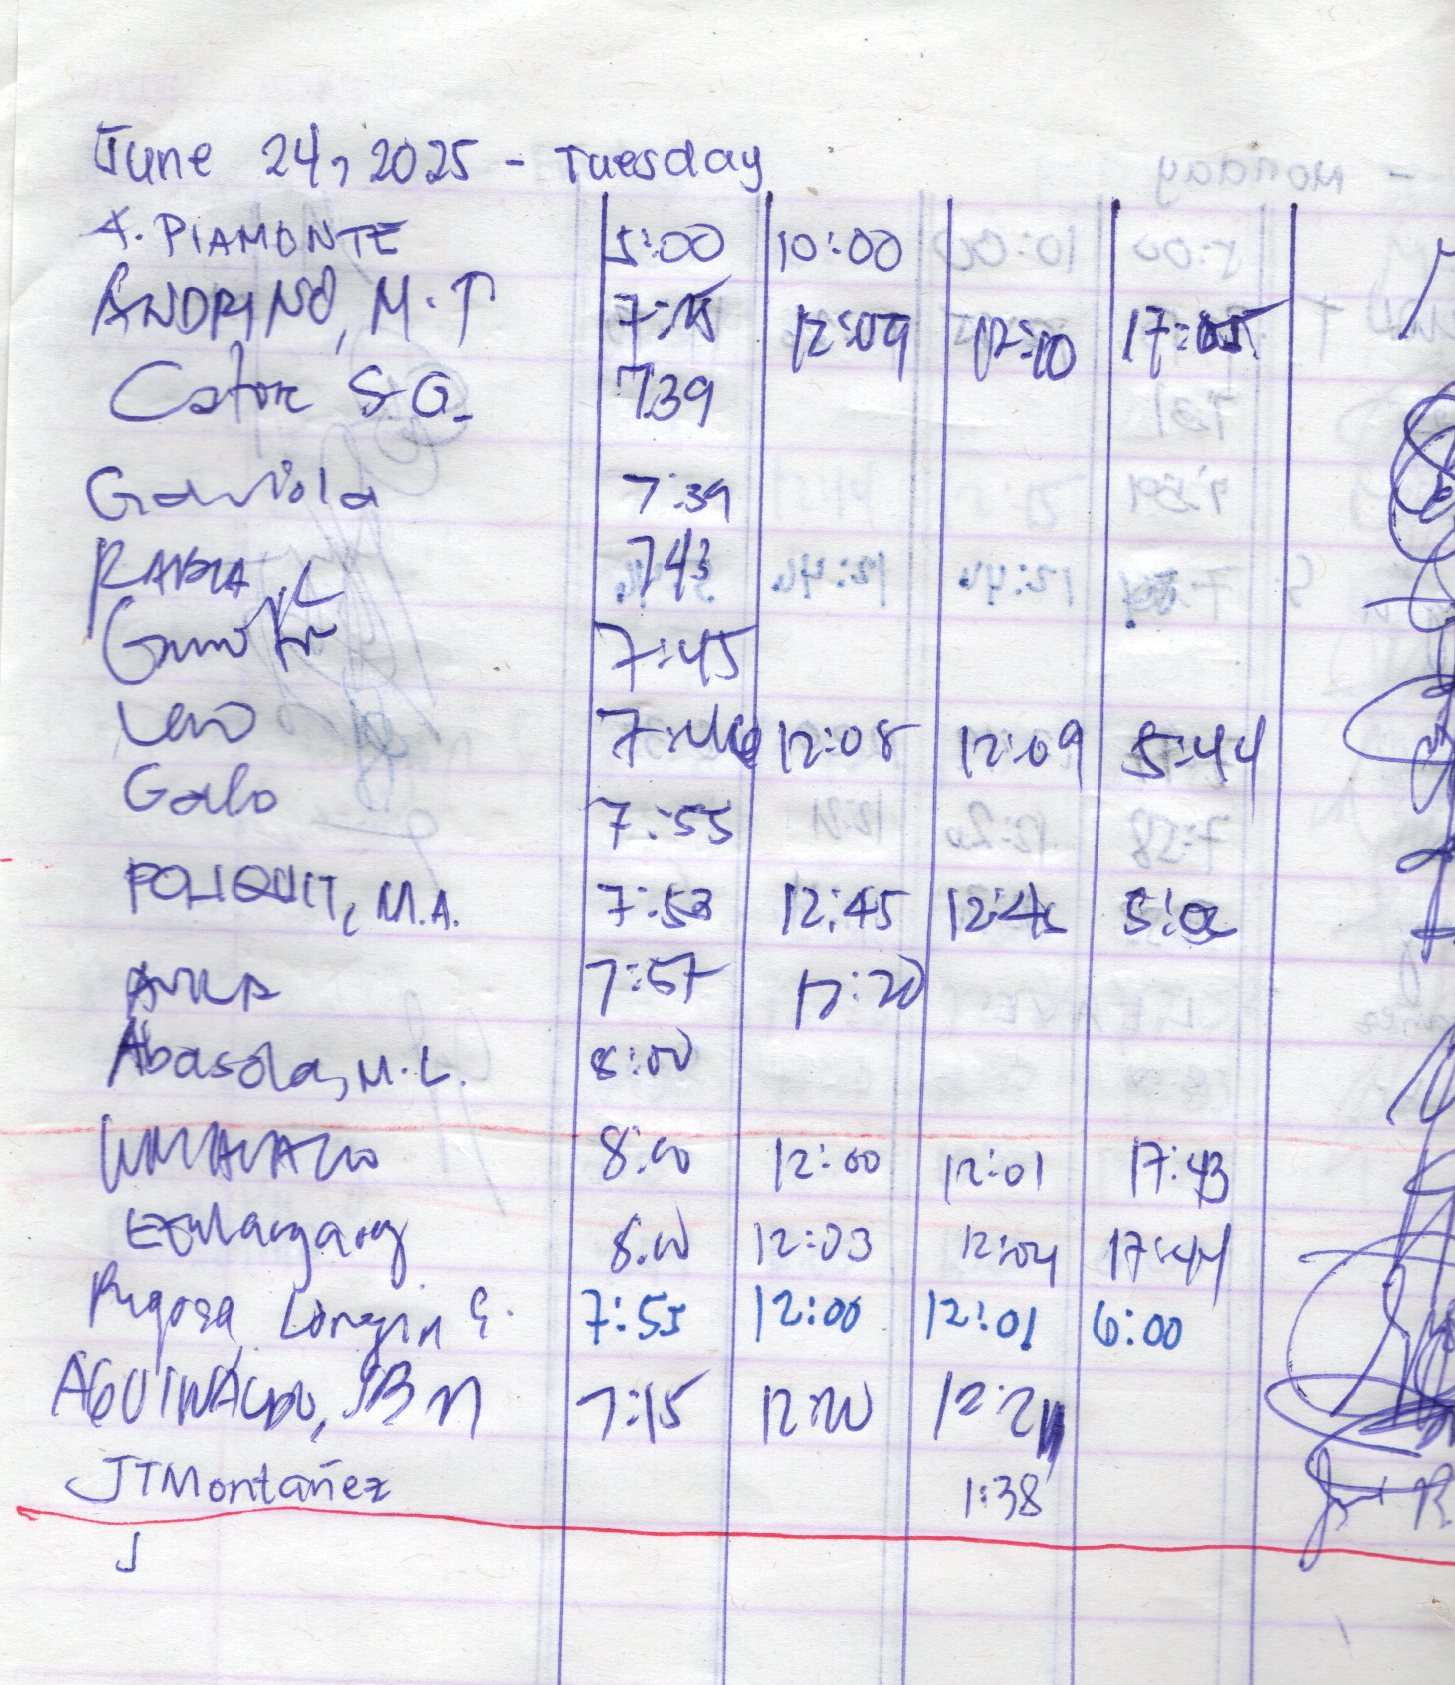 June 24, 2025 - Tuesday
A. PIAMONTE 5:00 10:00
ANDRINO, M.T 7:15 12:09 12:10 17:05
Cator S.G. 739
Gaviola 7:39
RABIA, L 743
7:45
Leno 7:46 12:08 12:09 5:44
Galo 7:55
POLIQUIT, M.A. 7:53 12:45 12:46 5:02
AVILA 7:57 12:20
Abasola, M.L. 8:00
8:00 12:00 12:01 17:43
8:00 12:03 12:04 17:44
Pigosa, Longin G. 7:55 12:00 12:01 6:00
AGUINALDO, JBM 7:15 12:20 12:21
JTMontañez 1:38
J